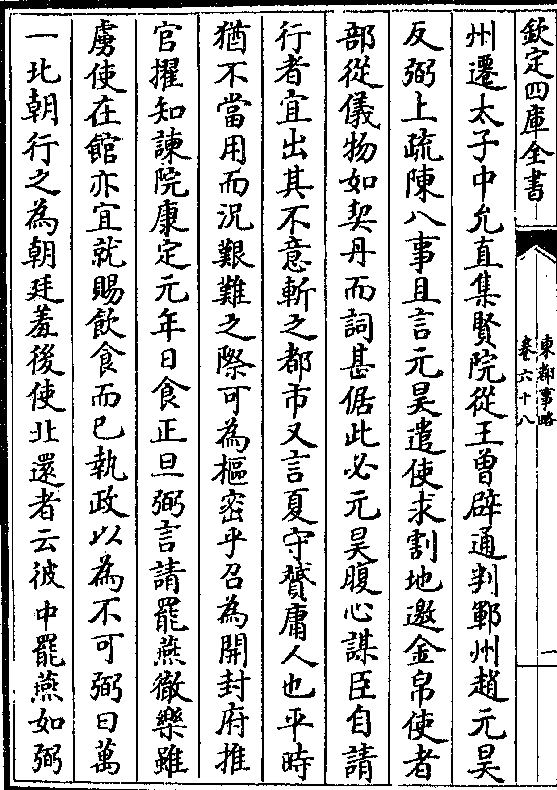 欽定四庫全書
東都事略
卷六十八
一
州遷太子中允直集賢院從王曾辟通判鄆州趙元昊
反弼上疏陳八事且言元昊遣使求割地邀金帛使者
部從儀物如契丹而詞甚倨此必元昊腹心謀臣自請
行者宜出其不意斬之都市又言夏守贇庸人也平時
猶不當用而況艱難之際可為樞密乎召為開封府推
官擢知諫院康定元年日食正旦弼言請罷燕徹樂雖
虜使在館亦宜就賜飲食而已執政以為不可弼曰萬
一北朝行之為朝廷羞後使北還者云彼中罷燕如弼